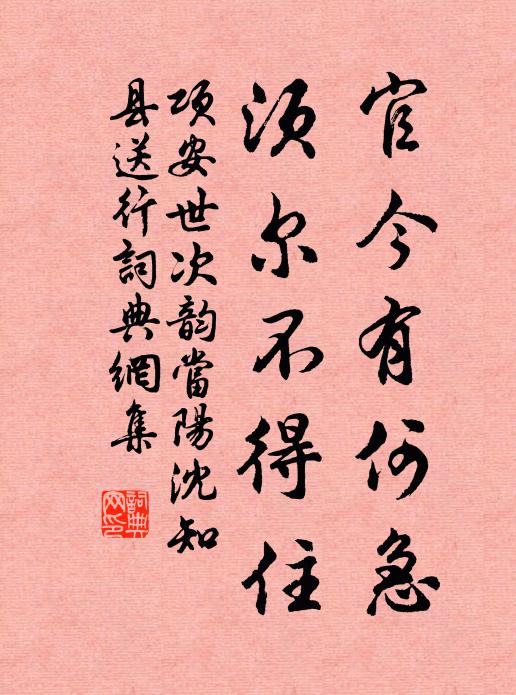 官今有何急
须尔不得住
项安世次韵當陽沈知
县送行詞典網集
詞典
网印